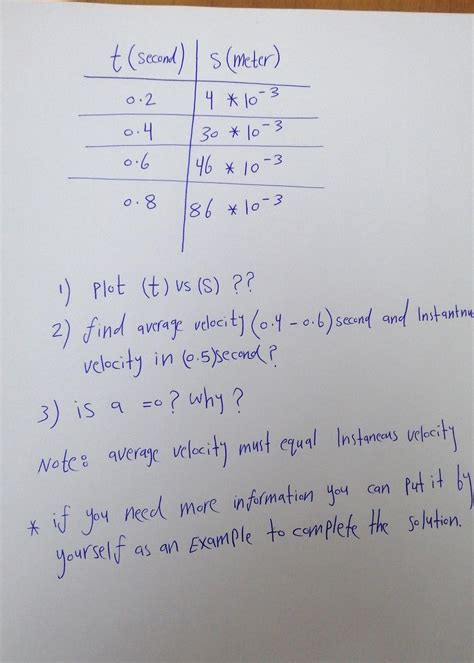 t (second) | S (meter)
0.2 | 4 * 10⁻³
0.4 | 30 * 10⁻³
0.6 | 46 * 10⁻³
0.8 | 86 * 10⁻³
1) Plot (t) vs (S) ??
2) find average velocity (0.4 - 0.6) second and Instantnu
velocity in (0.5) second ?
3) is a =0 ? why ?
Note: average velocity must equal Instaneous velocity
* if you need more information you can put it by
yourself as an Example to complete the solution.